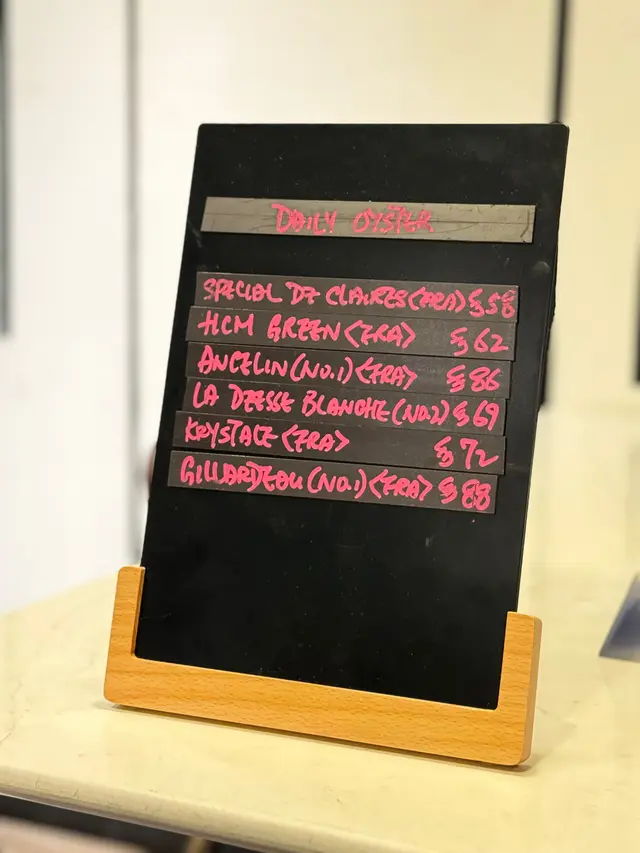 DAILY OYSTER
SPECIAL DE CLAIRES <FRA> $58
HCM GREEN <FRA> $62
ANCELIN (NO.1) <FRA> $86
LA DEESSE BLANCHE (NO.2) $69
KRYSTALE <FRA> $72
GILLARDEAU (NO.1) <FRA> $88